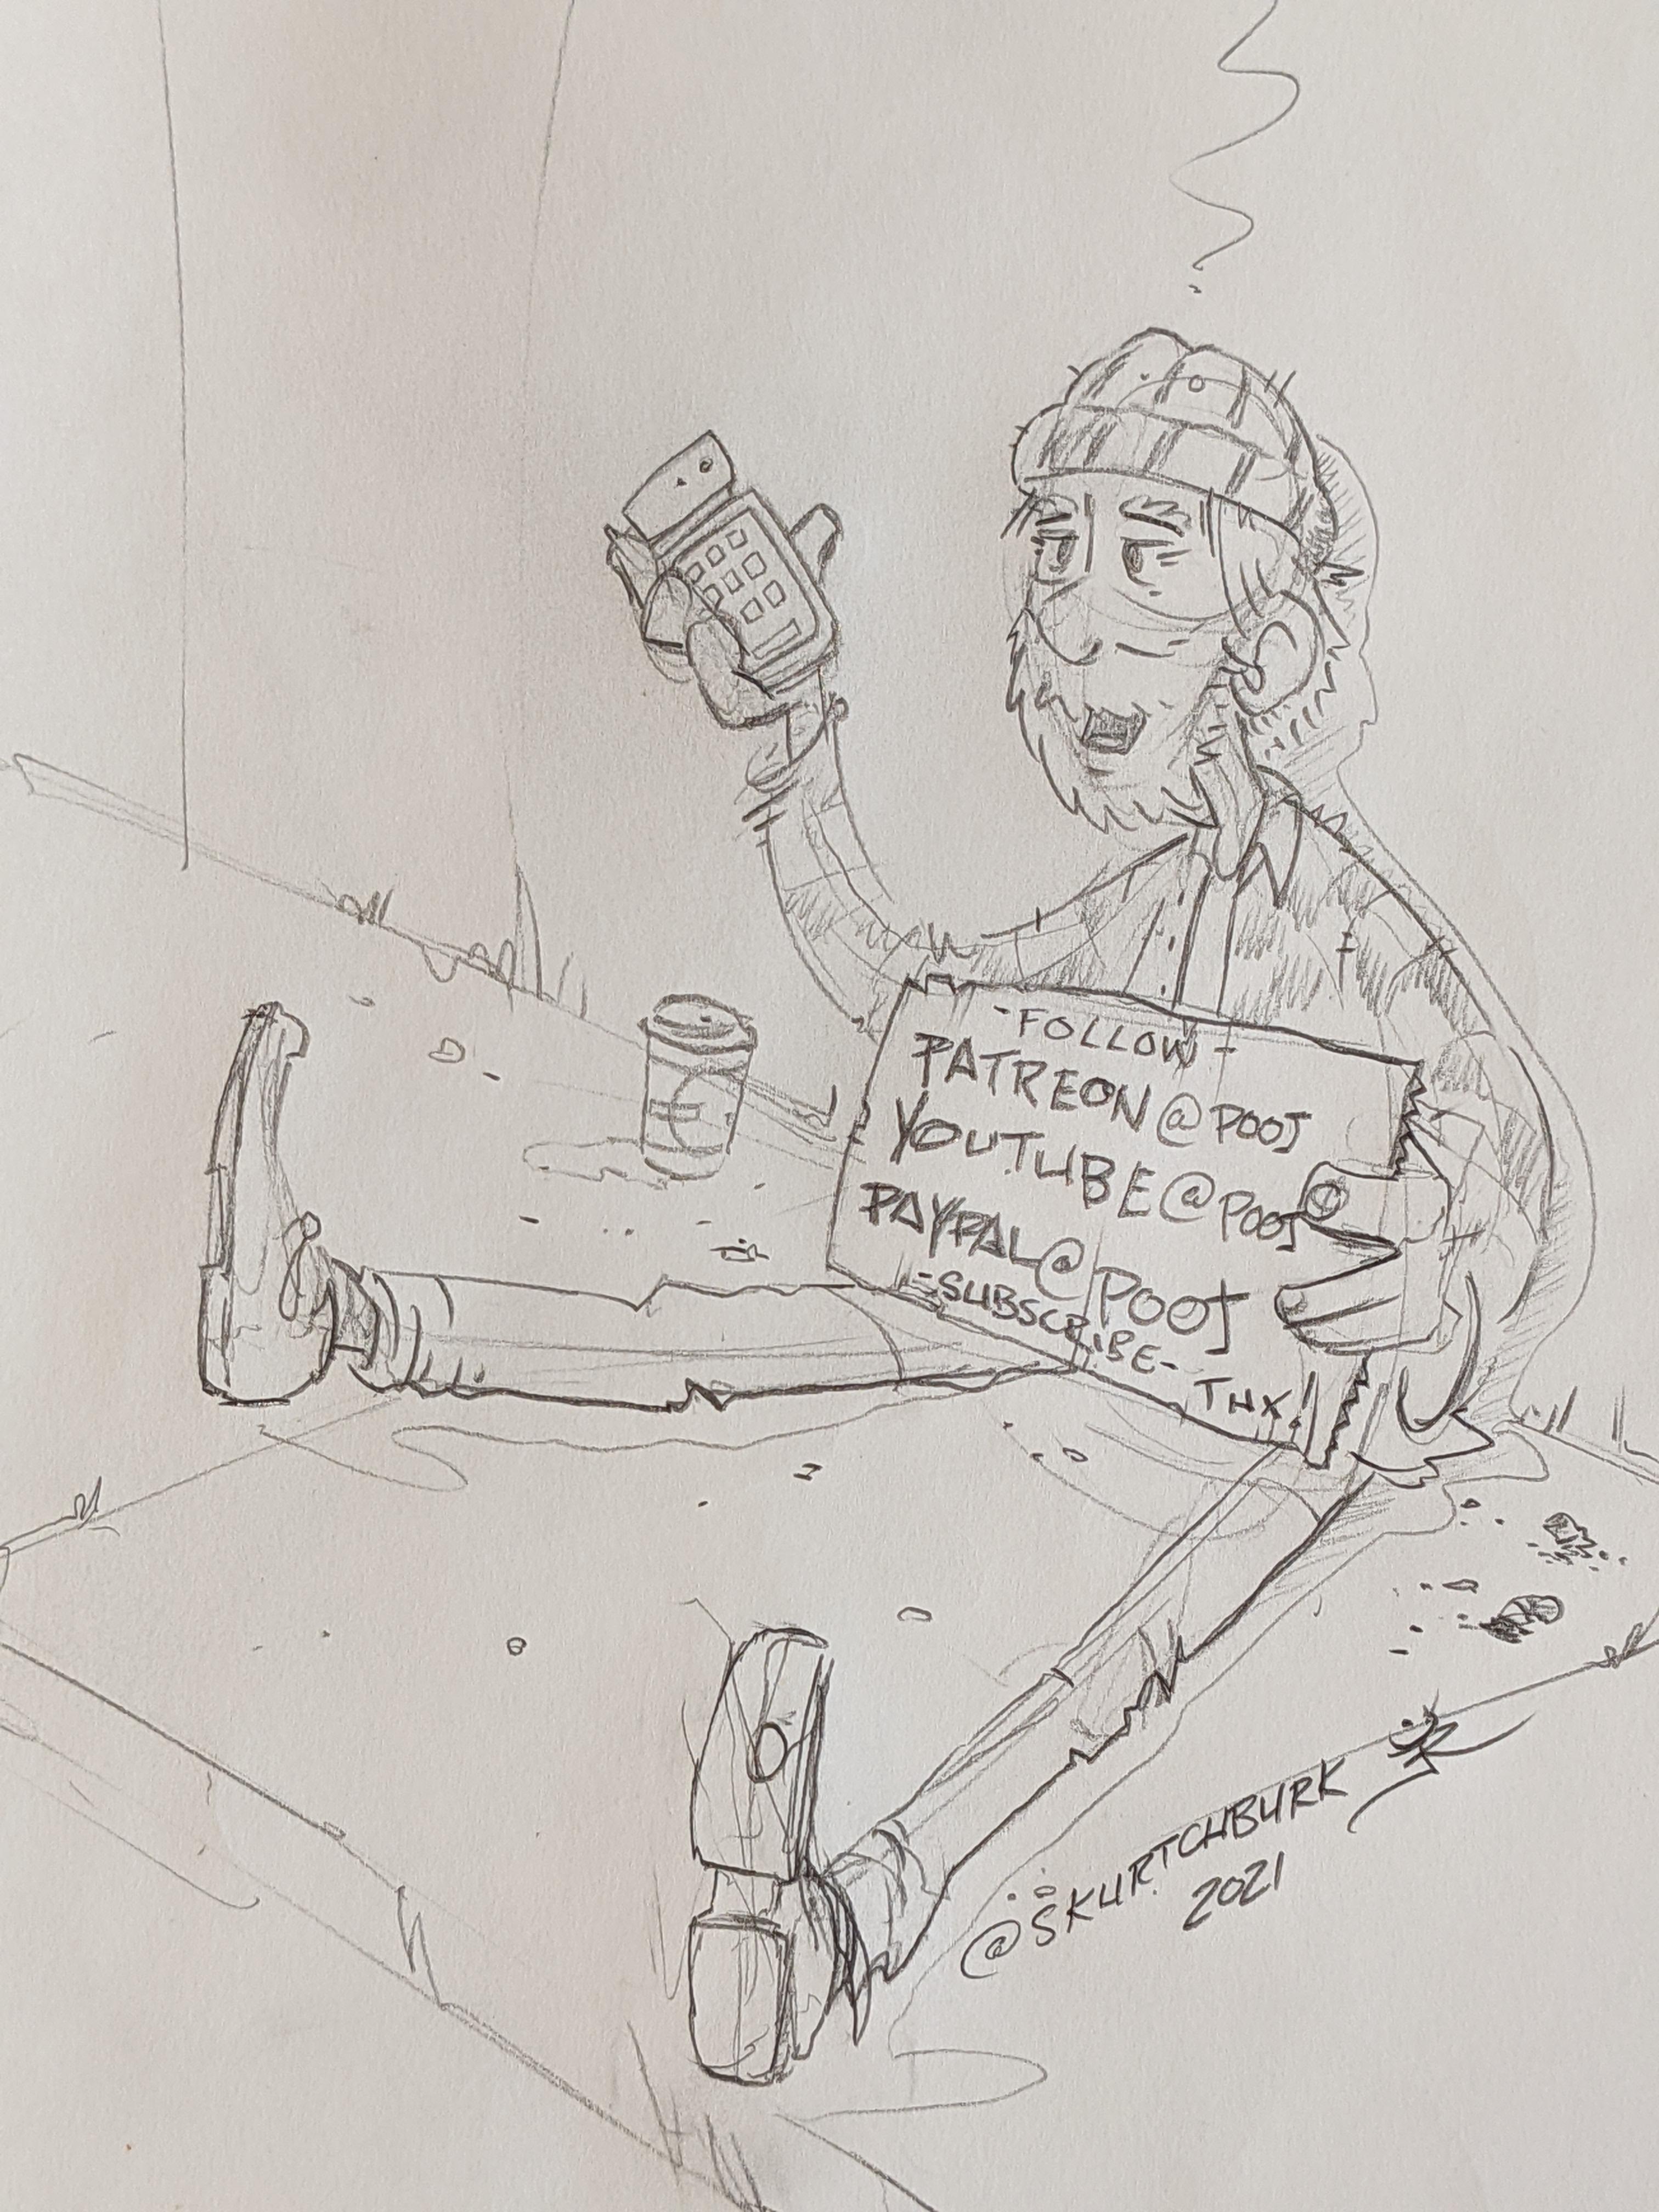 -FOLLOW-
PATREON@POOJ
YOUTUBE@POOJ
PAYPAL@POOJ
-SUBSCRIBE-
THX!
@SKURTCHBURK
2021